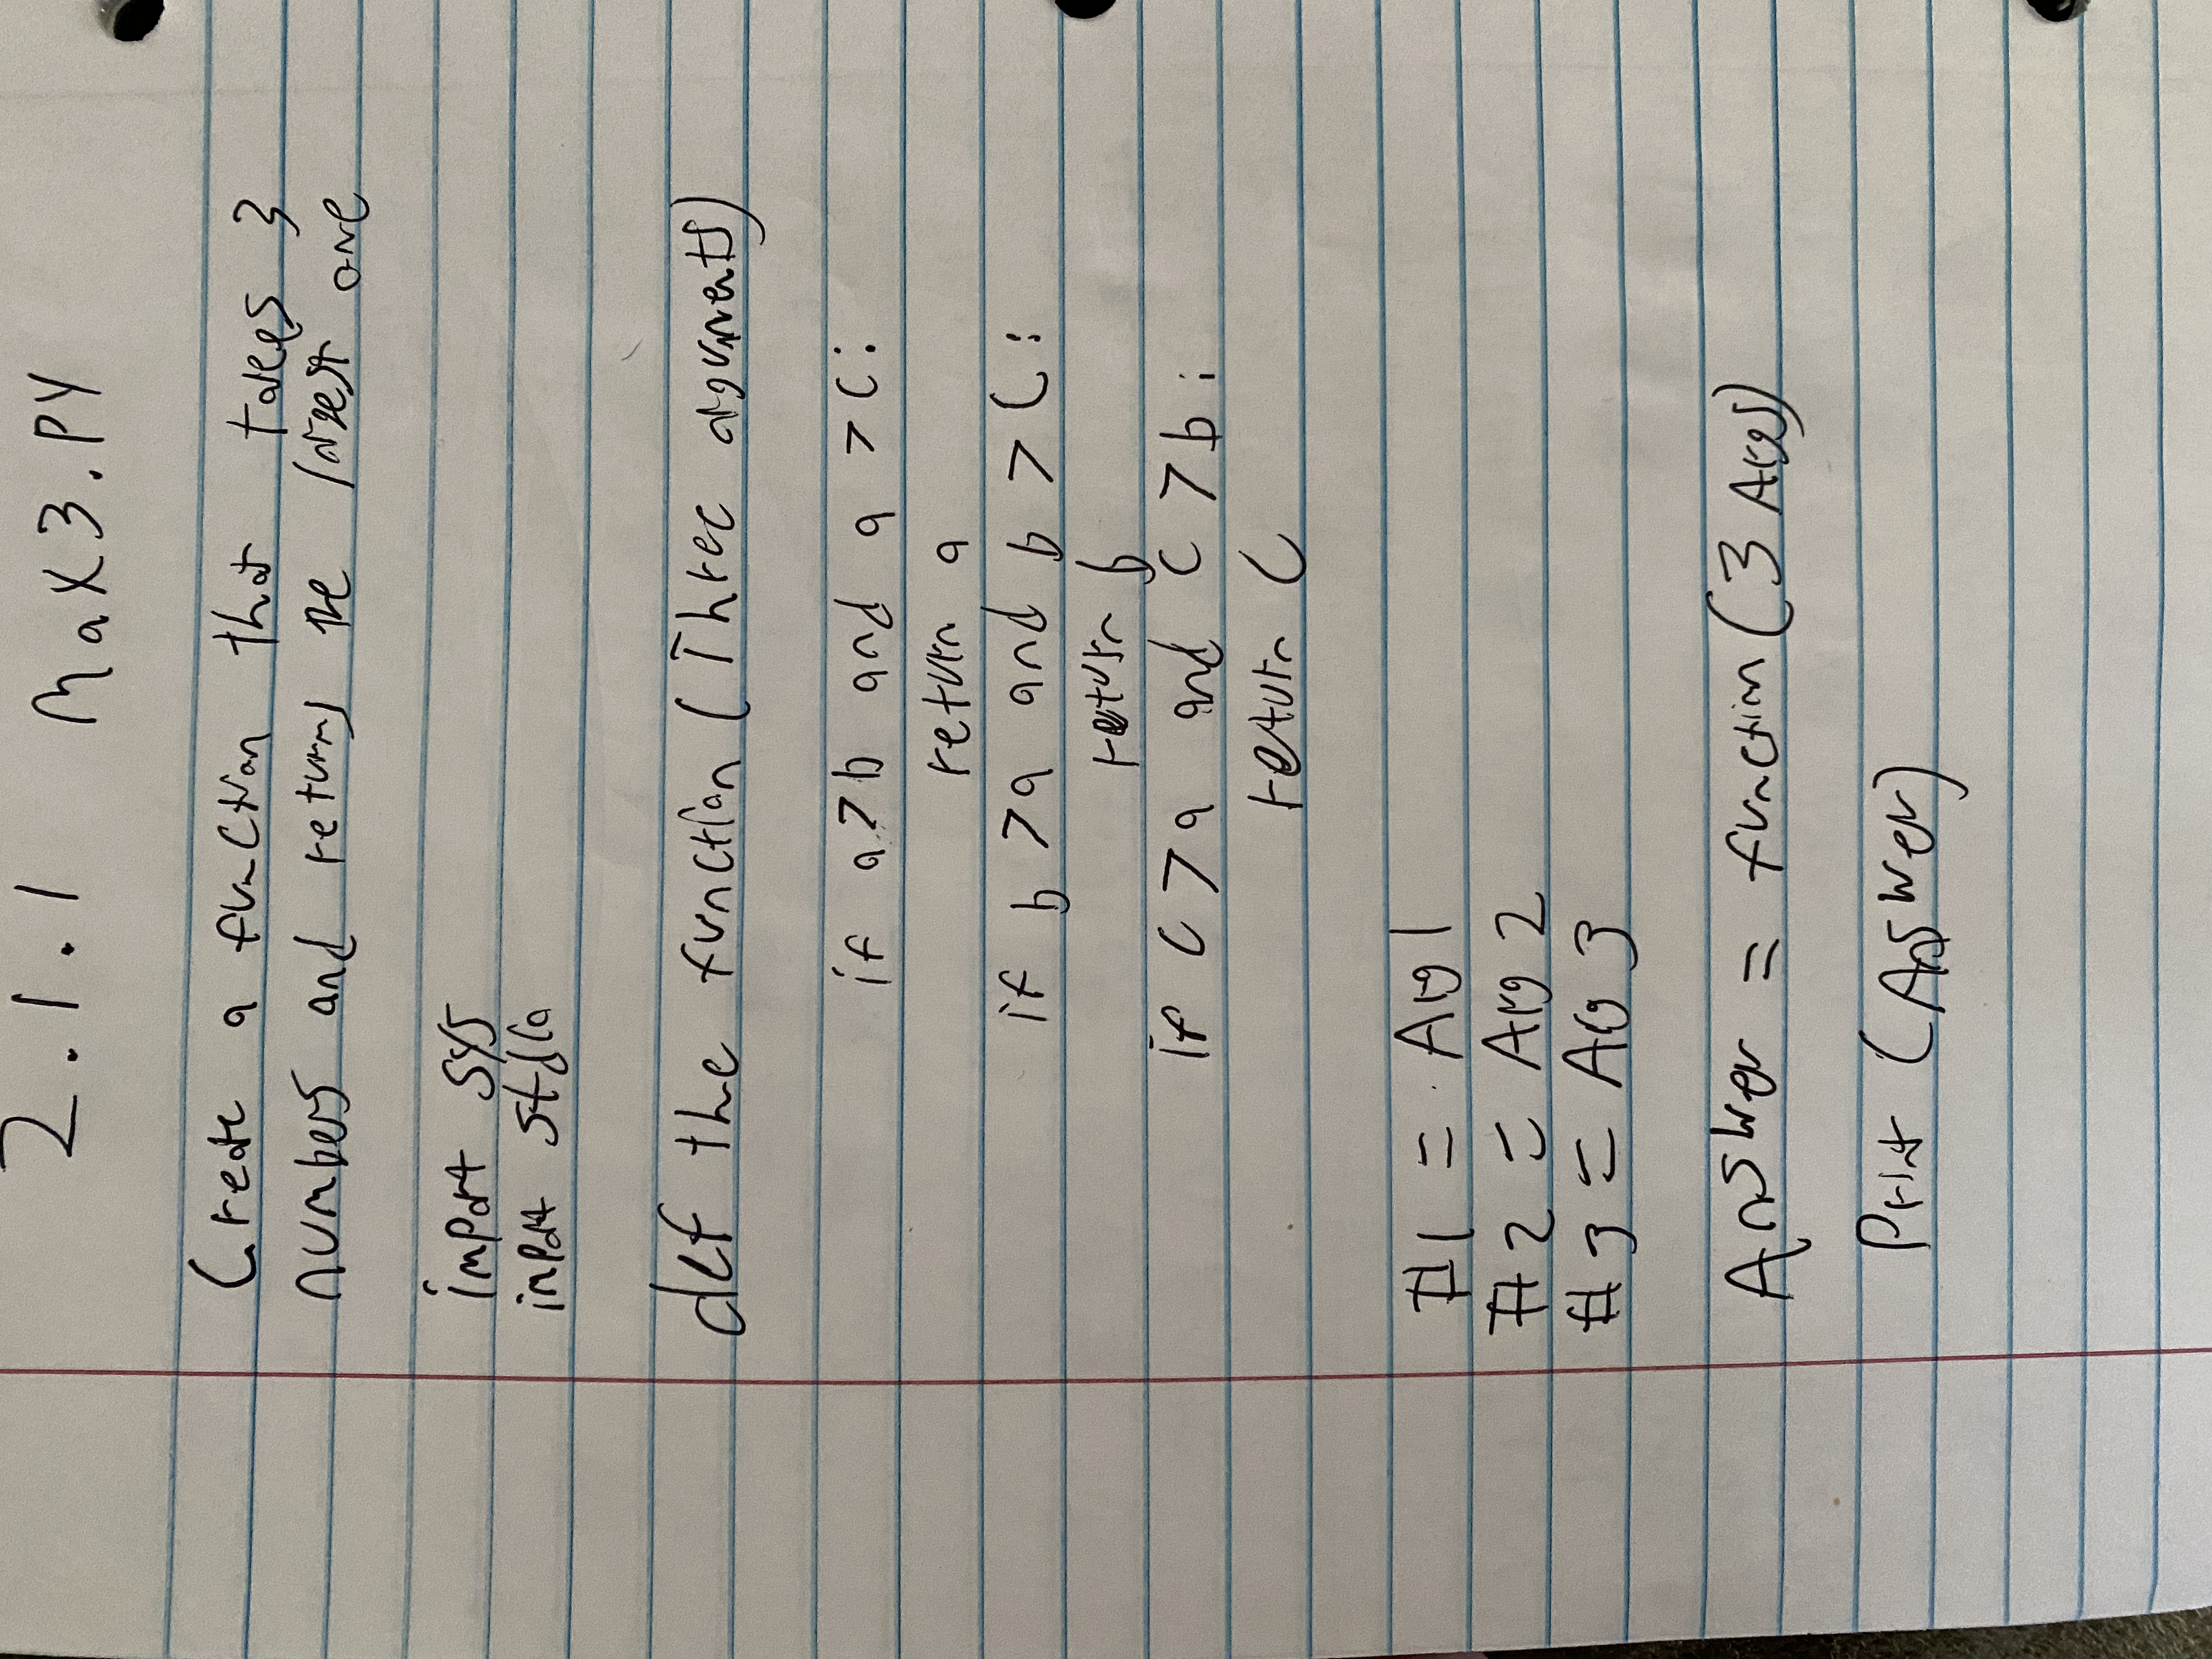 2.1.1 Max3.PY
Create a function that takes 3
numbers and returns the largest one
import sys
import stdio
def the function (Three arguments)
if a>b and a > C:
return a
if b >a and b > C:
return b
if C >a and C >b:
return C
#1 = Arg1
#2 = Arg 2
#3 = Arg 3
Answer = function (3 Args)
Print (Answer)